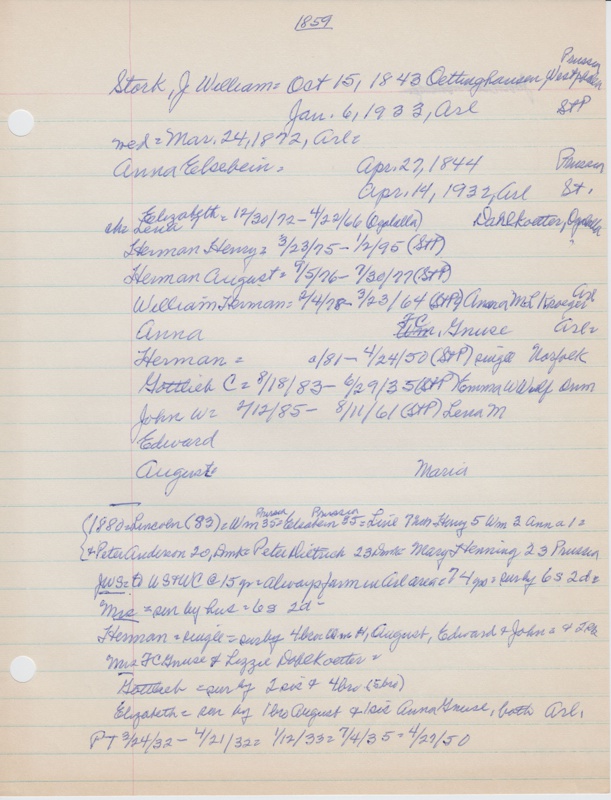 1859
Stork, J William = Oct 15, 1843 Oettinghausen, Westphalen Prussia
Jan. 6, 1933, Arl StP
med = Mar. 24, 1872, Arl =
Anna Elsebein = Apr. 27, 1844 Prussia
Apr. 14, 1932, Arl St.
aka Lena Elizabeth = 12/30/72 - 4/22/66 (Ogalalla) Dahlkoetter, Ogalalla
Herman Henry = 3/23/75 - 1/2/95 (StP)
Herman August = 9/5/76 - 7/30/77 (StP)
William Herman = 2/4/78 - 3/23/64 (StP) Anna ML Kroeger Arl
Anna F.C. Wm. Gnuse Arl =
Herman = /81 - 4/24/50 (StP) single Norfolk
Gottlieb C = 8/18/83 - 6/29/35 (StP) Emma W Wulf
John W = 2/12/85 - 8/11/61 (StP) Lena M
Edward
August Maria
(1880 = Lincoln (83) = Wm 35 Prussia = Elsabein 35 Prussia = Line 7 Henry 5 Wm 2 Anna 1 =
& Peter Anderson 20, Dmk = Peter Dietrich 23 Dmk = Mary Henning 23 Prussia
JWS = WS & WC @ 15 yr = always farm in Arl area = 74 yrs = sur by 6s 2d =
Mrs = sur by hus = 6s 2d =
Herman = single = sur by 4 bro Wm H, August, Edward & John = & 2 sis
Mrs FC Gnuse & Lizzie Dahlkoetter =
Gottlieb = sur by 2 sis & 4 bro (5 bro)
Elizabeth = sur by 1 bro August & 1 sis Anna Gnuse, both Arl.
PT 3/24/32 - 4/21/32 = 1/12/33 = 7/4/35 = 4/27/50